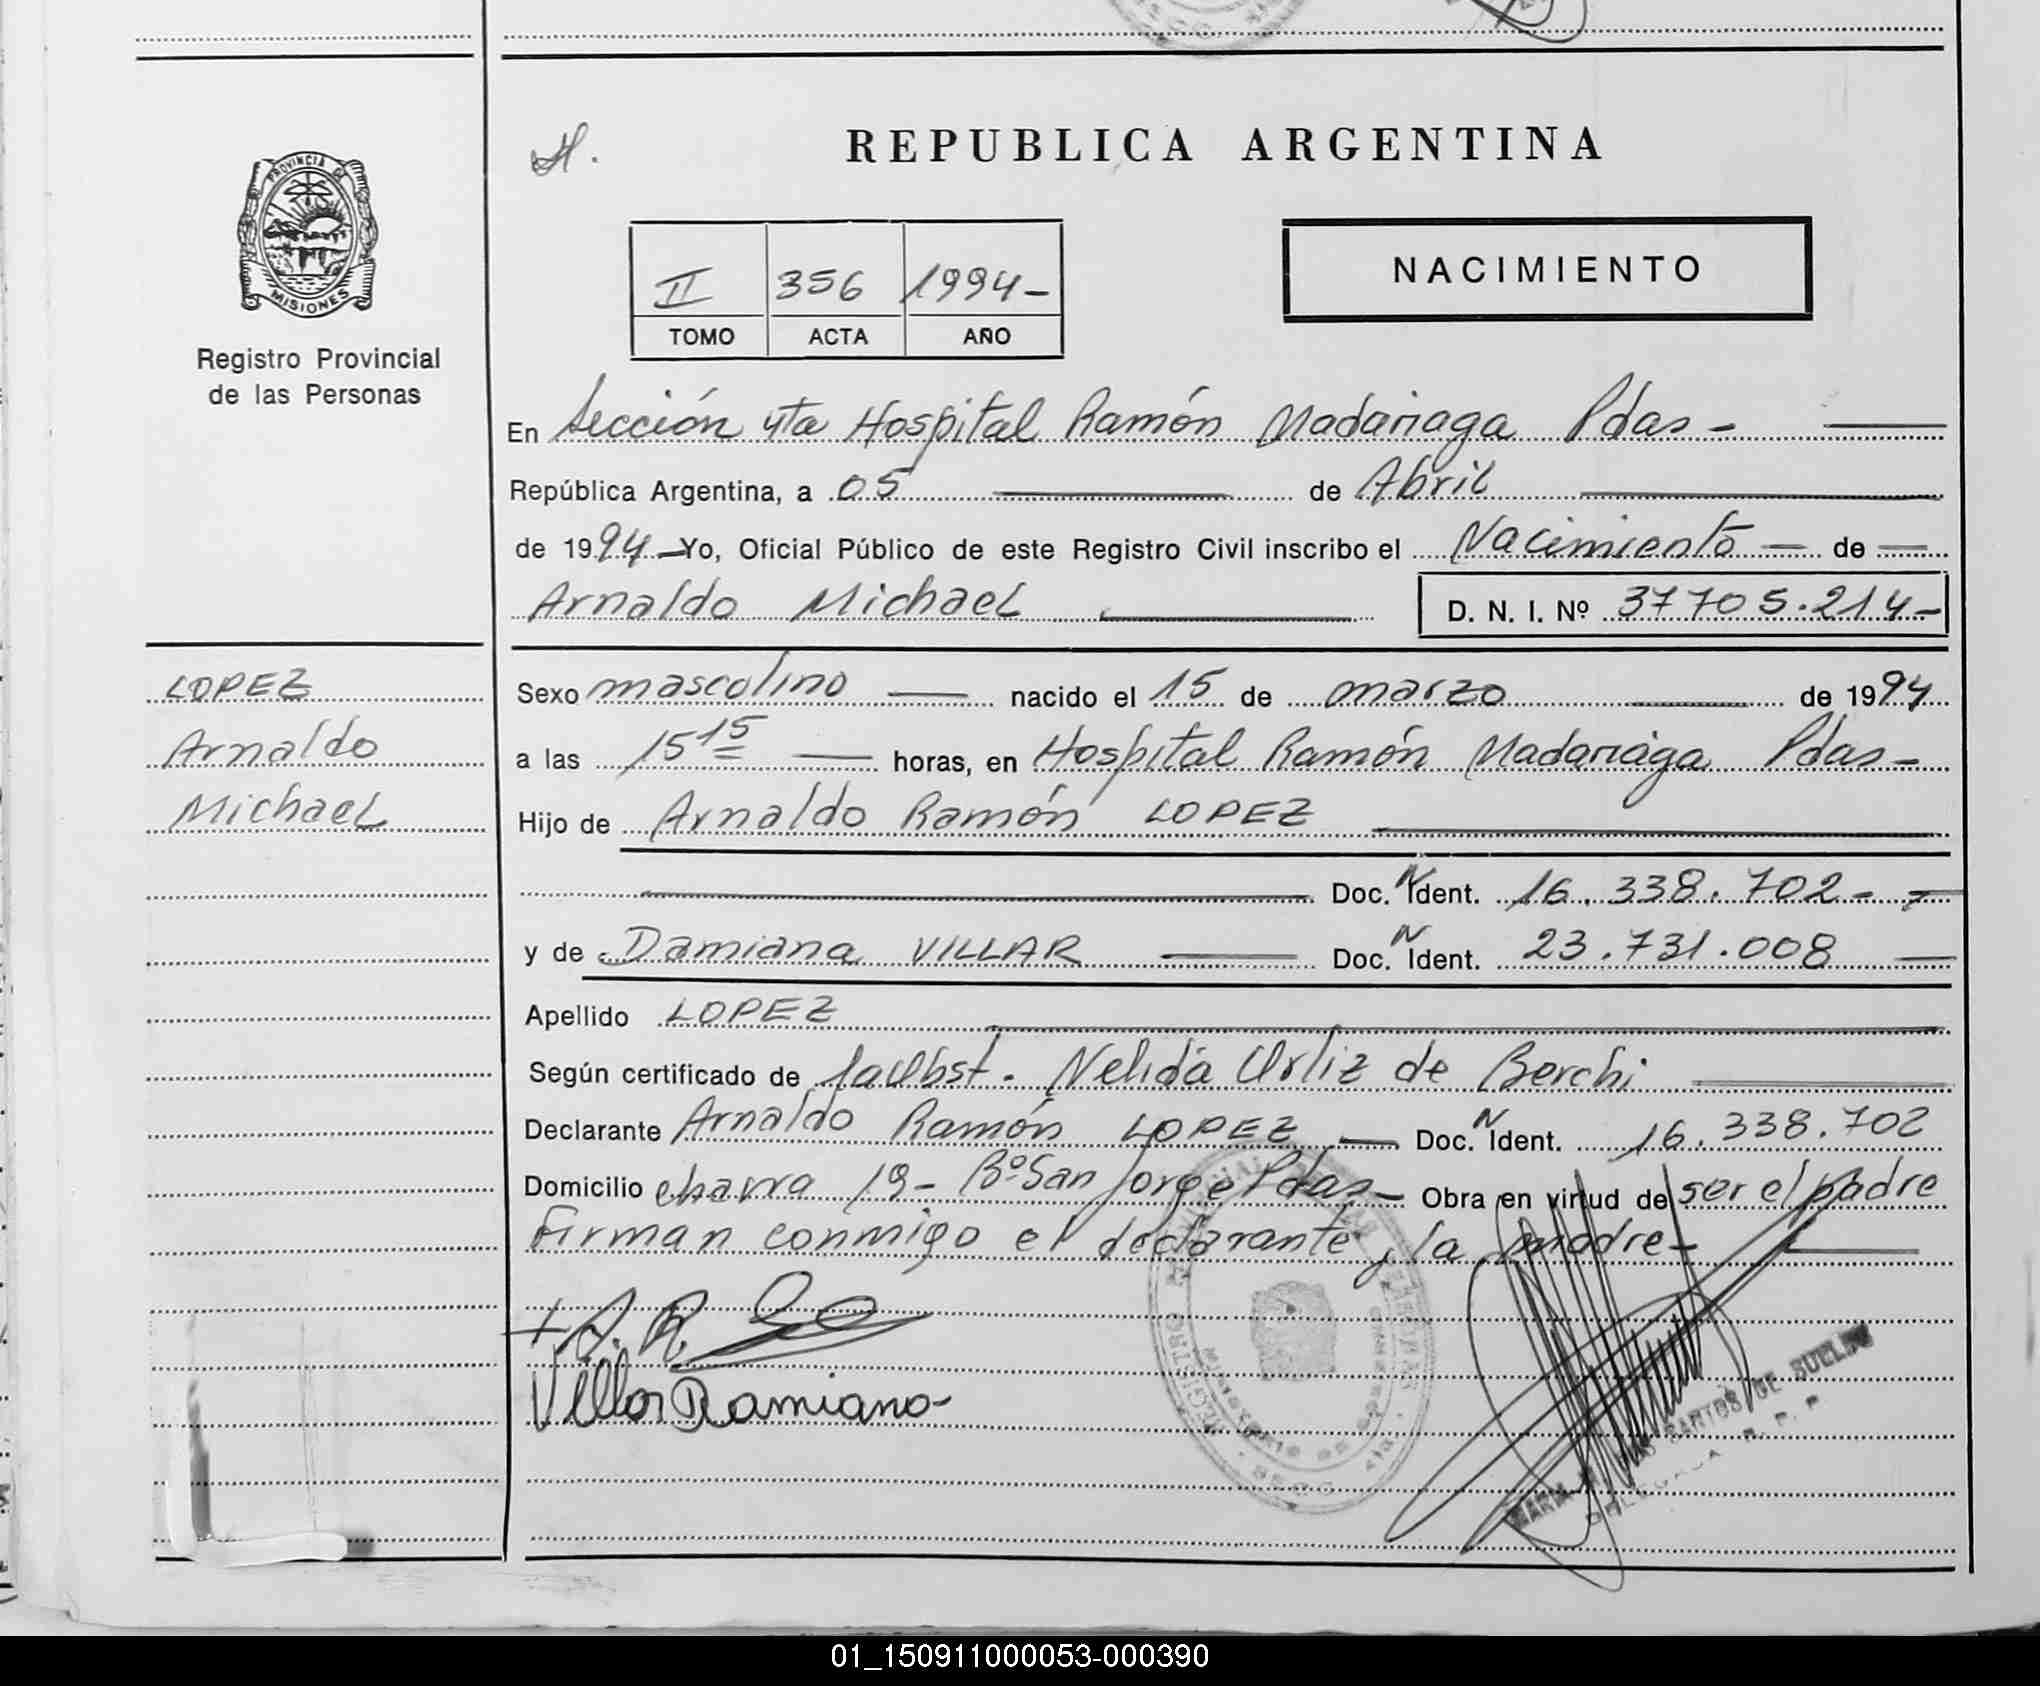 REPUBLICA ARGENTINA
NACIMIENTO
PROVINCIA DE
MISIONES
Registro Provincial
de las Personas
II 356 1994-
TOMO ACTA AÑO
En Sección 4ta Hospital Ramón Madariaga Pdas -
República Argentina, a 05 de Abril
de 1994 Yo, Oficial Público de este Registro Civil inscribo el Nacimiento de
Arnaldo Michael D. N. I. Nº 37705.214-
LOPEZ
Arnaldo
Michael
Sexo mascolino nacido el 15 de marzo de 1994
a las 15 15 horas, en Hospital Ramón Madariaga Pdas-
Hijo de Arnaldo Ramón LOPEZ
Doc. N Ident. 16.338.702-
y de Damiana VILLAR Doc. N Ident. 23.731.008
Apellido LOPEZ
Según certificado de Nelida Ortiz de Berchi
Declarante Arnaldo Ramón LOPEZ Doc. N Ident. 16.338.702
Domicilio charra 19- Bº San Jorge Pdas- Obra en virtud de ser el padre
Firman conmigo el declarante, la madre-
A. R.
Villar Damiana
SANTOS DE
DELEGADA R. P. P
01_150911000053-000390